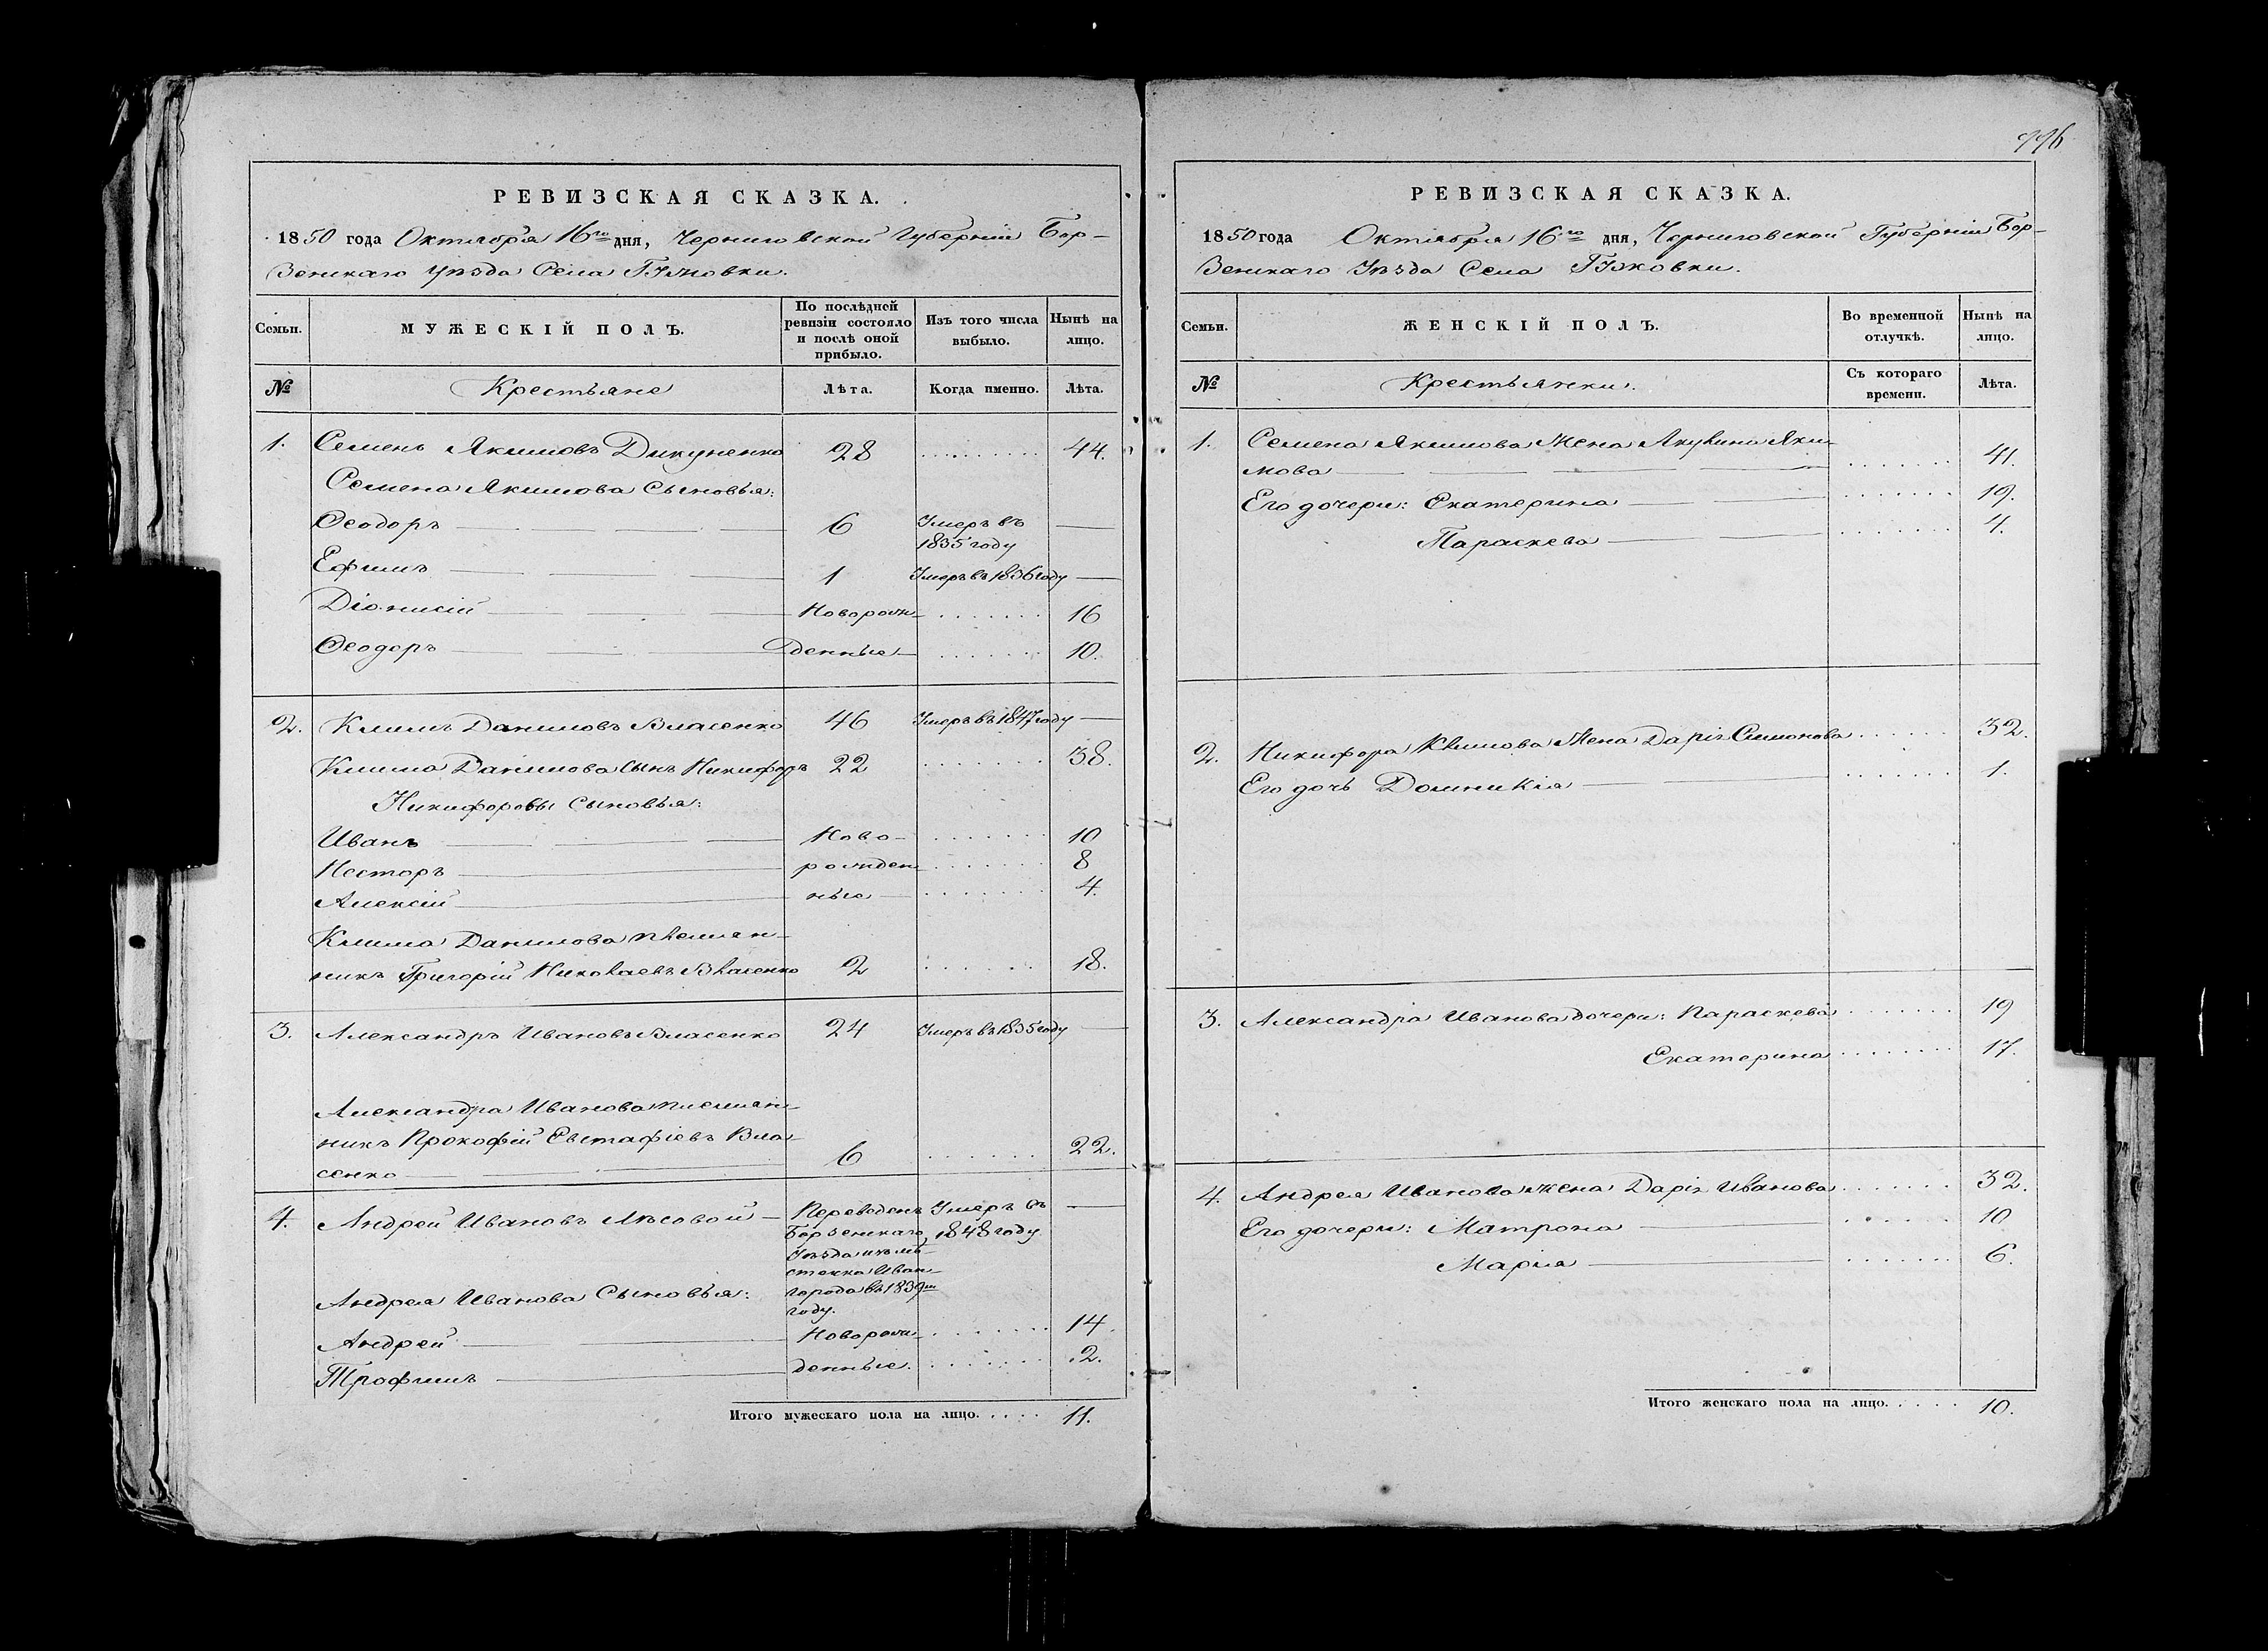 РЕВИЗСКАЯ СКАЗКА.
1850 года Октября 16го дня, Черниговской Губерніи Бор-
зенскаго Уѣзда Села
Семьи.
МУЖЕСКІЙ ПОЛЪ.
По послѣдней ревизіи состояло и послѣ оной прибыло.
Изъ того числа выбыло.
Нынѣ на лицо.
№ Крестьяне Лѣта. Когда именно. Лѣта.
1. Семенъ Якимовъ Дикуненко 28 44.
Семена Якимова Сыновья:
Ѳеодоръ 6 Умеръ въ
1835 году
Ефимъ 1 Умеръ въ 1836 году
Діонисій Новорож- 16
Ѳеодоръ денные 10.
2. Климъ Даниловъ Власенко 46 Умеръ въ 1847 году
Клима Данилова Сынъ Никифоръ 22 38.
Никифоровы Сыновья:
Иванъ Ново- 10
Несторъ рожден- 8
Алексій ные 4.
Клима Данилова племян-
никъ Григорій Николаевъ Власенко 2 18.
3. Александръ Ивановъ Власенко 24 Умеръ въ 1835 году
Александра Иванова племян-
никъ Прокофій Евстафіевъ Вла-
сенко 6 22.
4. Андрей Ивановъ Лѣсовой Переведенъ Умеръ въ
Борзенскаго 1848 году
Уѣзда изъ мѣ-
стечка Иван-
города въ 1839м
году.
Андрея Иванова Сыновья:
Андрей Новорож- 14.
Трофимъ денные. 2.
Итого мужескаго пола на лицо. . . . . 11.
996
РЕВИЗСКАЯ СКАЗКА.
1850 года Октября 16го дня, Черниговской Губерніи Бор-
зенскаго Уѣзда Села
Семьи.
ЖЕНСКІЙ ПОЛЪ.
Во временной отлучкѣ.
Нынѣ на лицо.
№ Крестьянки. Съ котораго времени. Лѣта.
1. Семена Якимова Жена Акулина Яки-
мова 41.
Его дочери: Екатерина 19.
Параскева 4.
2. Никифора Климова Жена Дарія Симонова 32.
Его дочь Домникія 1.
3. Александра Иванова дочери: Параскева 19
Екатерина 17.
4. Андрея Иванова жена Дарія Иванова 32.
Его дочери: Матрона 10
Марія 6.
Итого женскаго пола на лицо. . . . . 10.